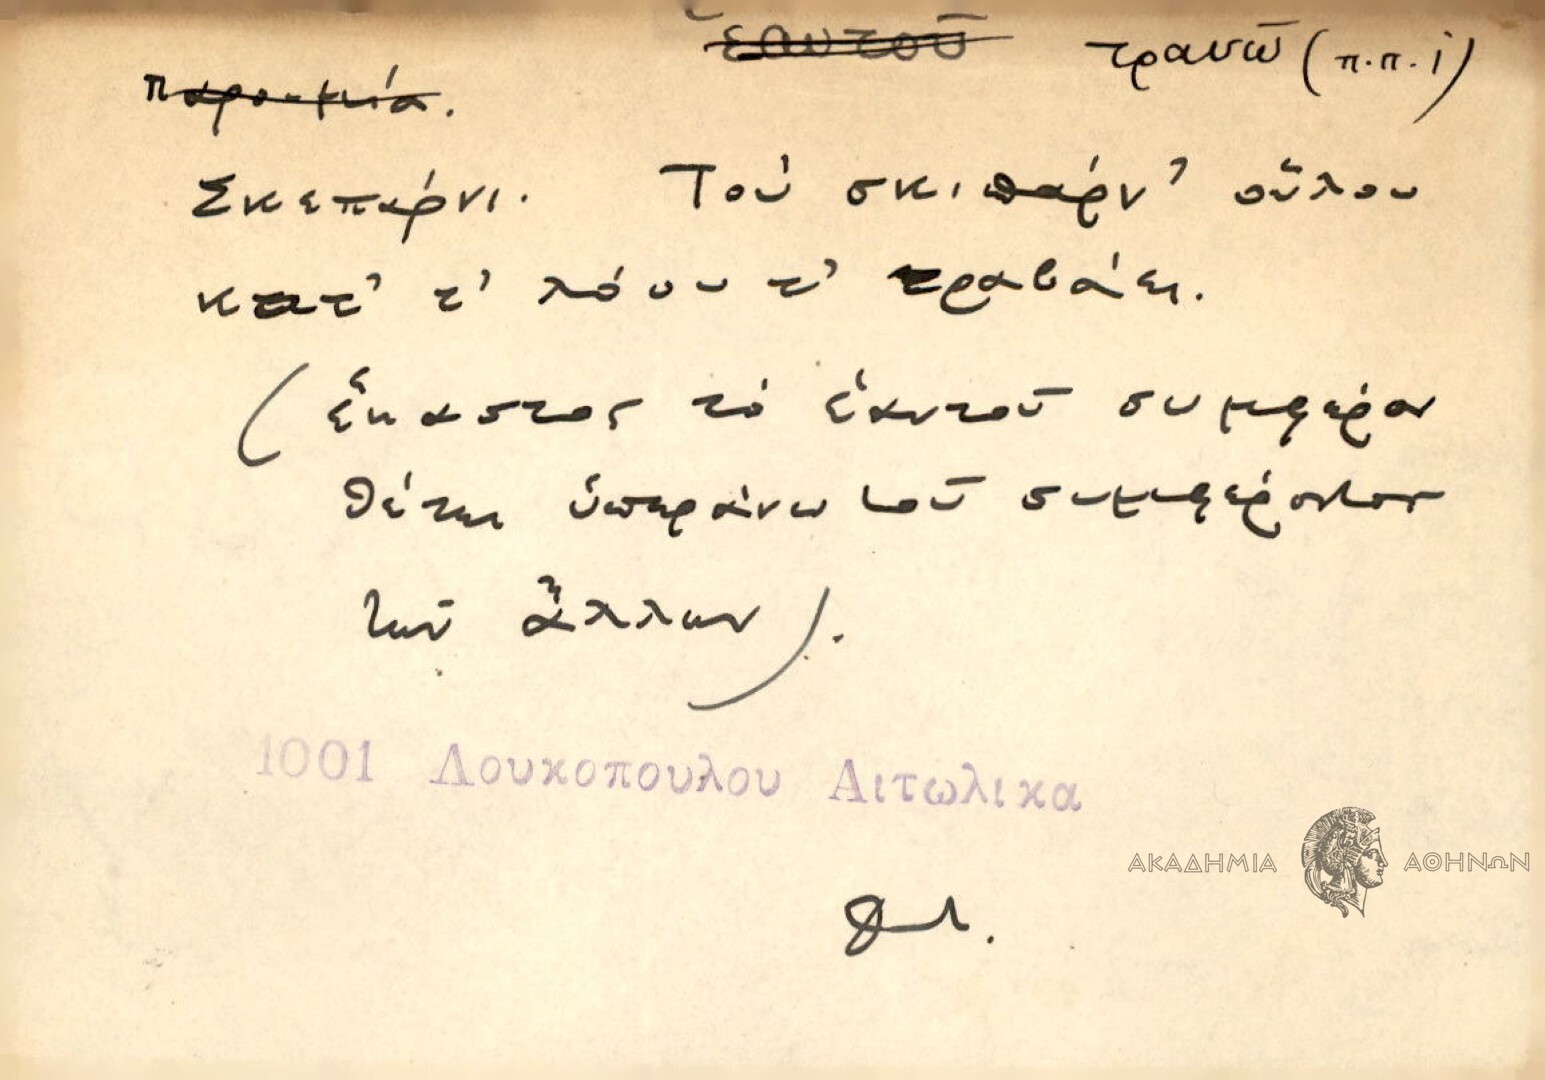 ἑαυτοῦ τρανῶ (π.π. ἰ)
παροιμία.
Σκεπάρνι. Τοὺ σκιπάρν' οὕλου
κατ' τ' λόου τ' τραβάει.
(ἕκαστος τὸ ἑαυτοῦ συμφέρον
θέτει ὑπεράνω τοῦ συμφέροντος
τῶν ἄλλων).
1001 Λουκοπουλου Αιτωλικα
ΑΚΑΔΗΜΙΑ ΑΘΗΝΩΝ